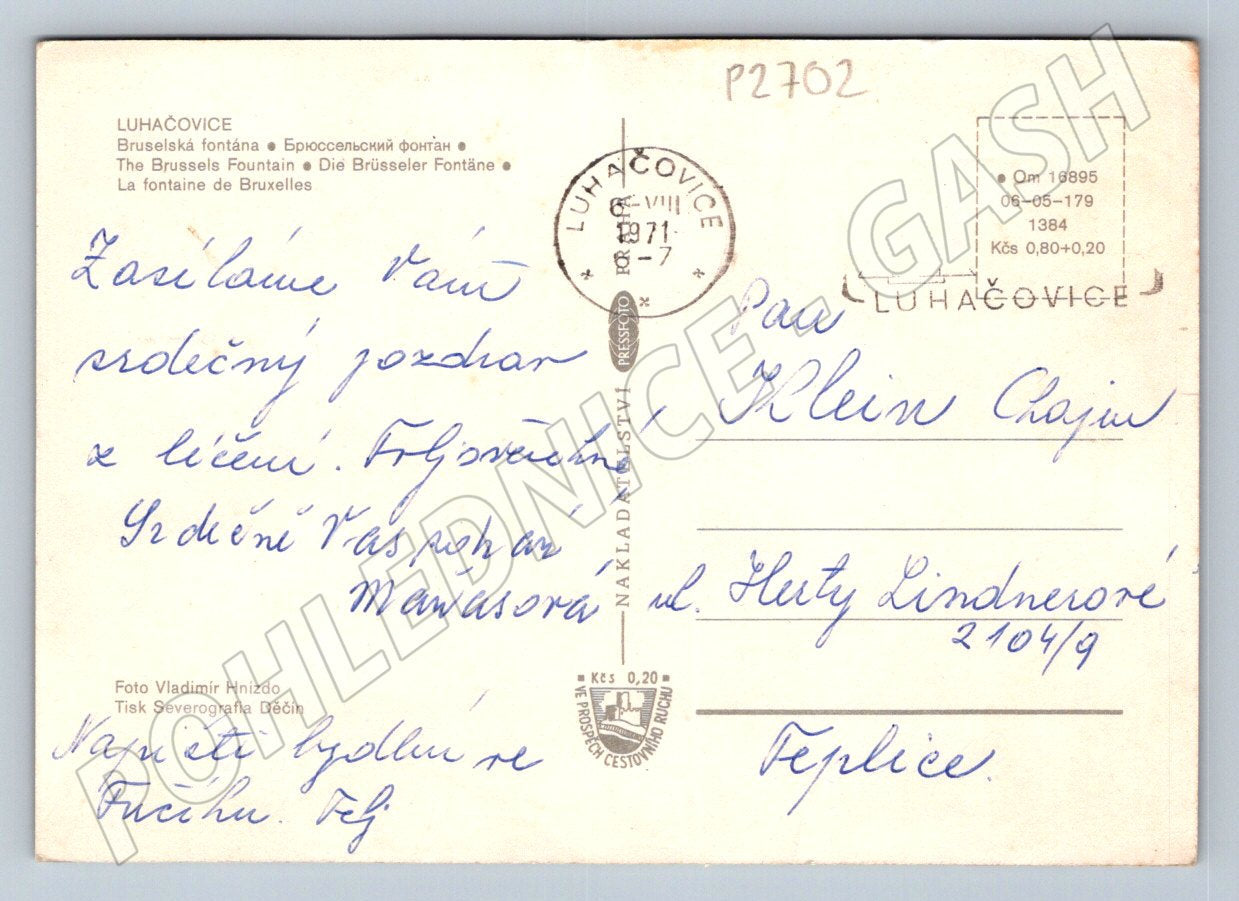 P2702
LUHAČOVICE
Bruselská fontána • Брюссельский фонтан •
The Brussels Fountain • Die Brüsseler Fontäne •
La fontaine de Bruxelles
LUHAČOVICE
6-VIII
1971
-7
• Om 16895
06-05-179
1384
Kčs 0,80+0,20
LUHAČOVICE
Zasíláme Vám
srdečný pozdrav
z léčení.
Srdečně Vás
Pan
Klein Chajim
ul. Herty Lindnerové
2104/9
Teplice.
NAKLADATELSTVÍ PRESSFOTO PRAHA
Kčs 0,20
VE PROSPĚCH CESTOVNÍHO RUCHU
Foto Vladimír Hnízdo
Tisk Severografia Děčín
bydlím ve
POHLEDNICE - GASH